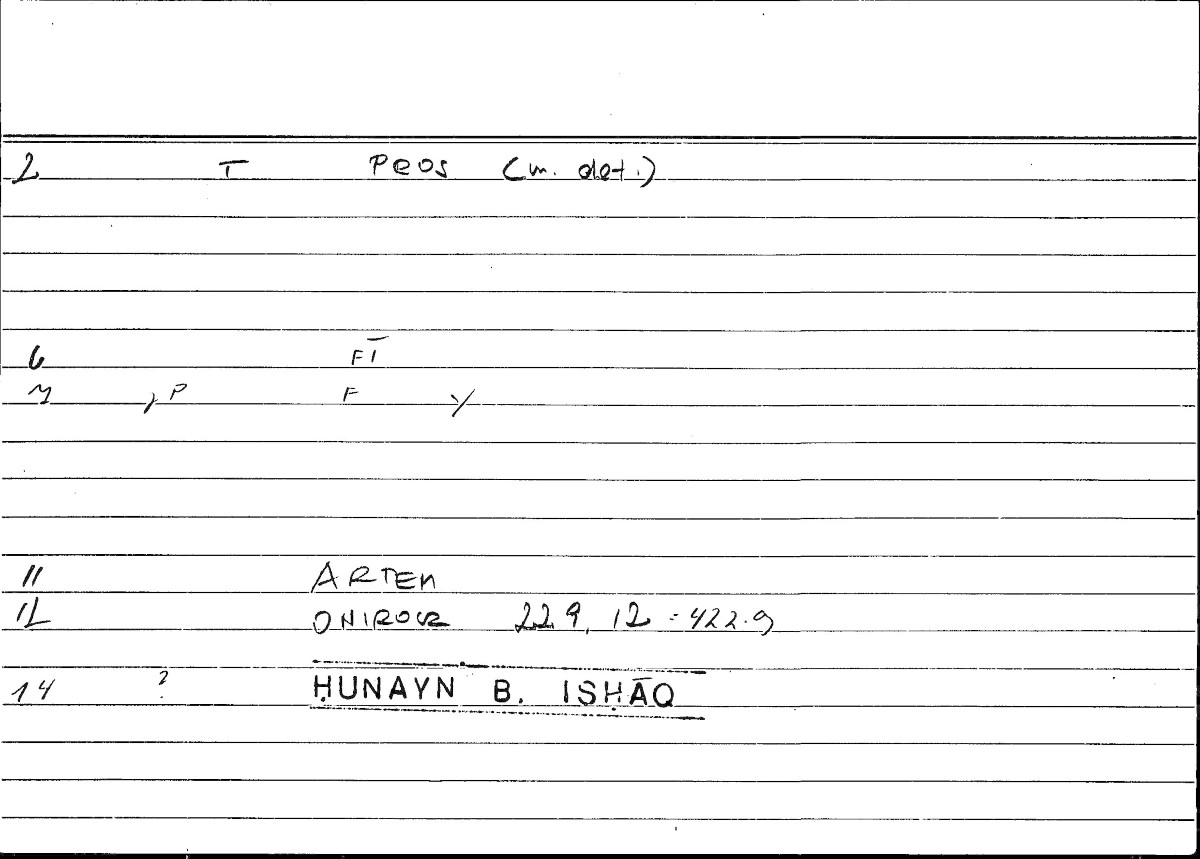 2 T PROS (m. det.)
6 FĪ
M , P F Y
11 ARTEM
12 ONIROCR 229, 12 = 422.9
14 ? ḤUNAYN B. ISḤĀQ